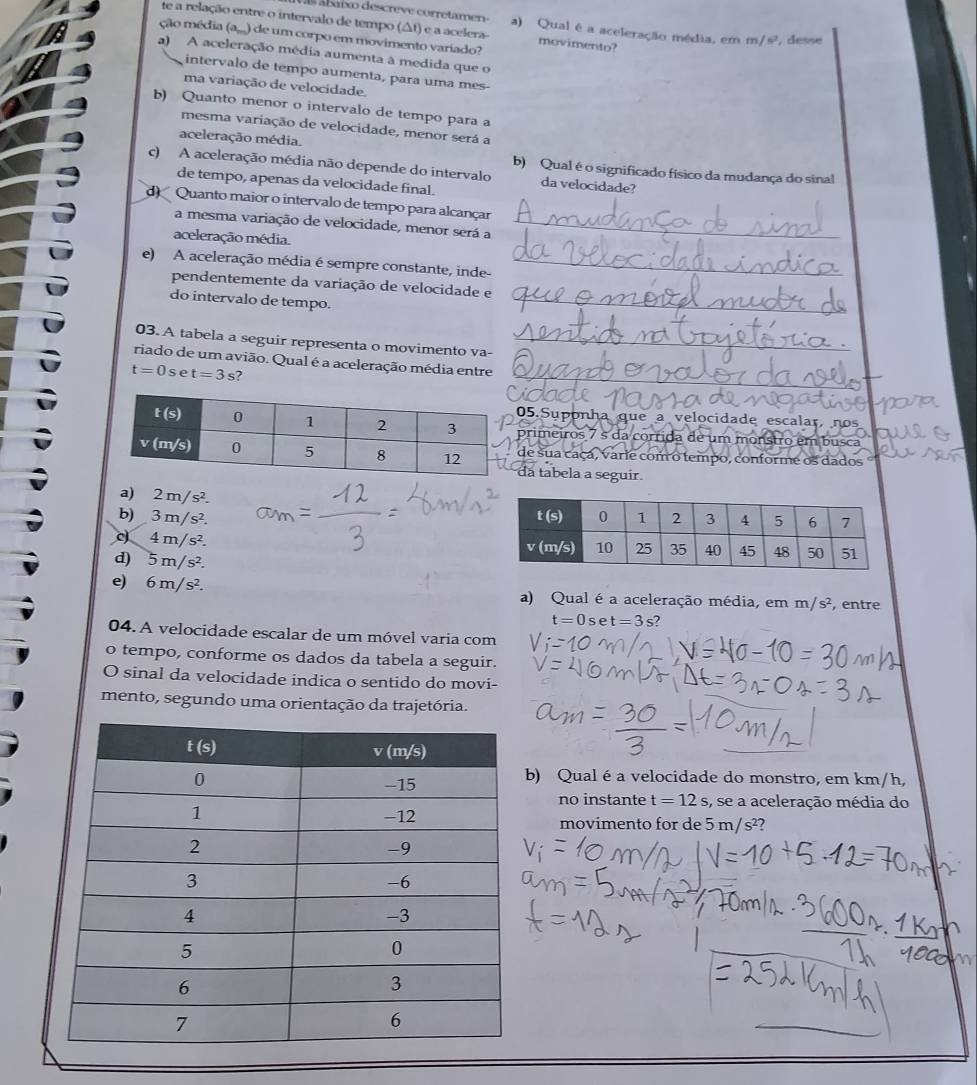 abaixo descreve corretamen-
te a relação entre o intervalo de tempo (Δt) e a acelera-
ção média (aₘ) de um corpo em movimento variado?
a) A aceleração média aumenta à medida que o
intervalo de tempo aumenta, para uma mes-
ma variação de velocidade.
b) Quanto menor o intervalo de tempo para a
mesma variação de velocidade, menor será a
aceleração média.
c) A aceleração média não depende do intervalo
de tempo, apenas da velocidade final.
d) Quanto maior o intervalo de tempo para alcançar
a mesma variação de velocidade, menor será a
aceleração média.
e) A aceleração média é sempre constante, inde-
pendentemente da variação de velocidade e
do intervalo de tempo.
03. A tabela a seguir representa o movimento va-
riado de um avião. Qual é a aceleração média entre
t = 0 s e t = 3 s?
t (s) 0 1 2 3
v (m/s) 0 5 8 12
a) 2 m/s².
b) 3 m/s².
c) 4 m/s².
d) 5 m/s².
e) 6 m/s².
am = 12/3 = m/s²
04. A velocidade escalar de um móvel varia com
o tempo, conforme os dados da tabela a seguir.
O sinal da velocidade indica o sentido do movi-
mento, segundo uma orientação da trajetória.
t (s) v (m/s)
0 –15
1 –12
2 –9
3 –6
4 –3
5 0
6 3
7 6
a) Qual é a aceleração média, em m/s², desse
movimento?
b) Qual é o significado físico da mudança do sinal
da velocidade?
A mudança do sinal
da velocidade indica
que o móvel mudor de
sentido na trajetória.
Quando o valor da velo
cidade passa de negativo para
que o
seu sen
tido
05. Suponha que a velocidade escalar, nos
primeiros 7 s da corrida de um monstro em busca
de sua caça, varie com o tempo, conforme os dados
da tabela a seguir.
t (s) 0 1 2 3 4 5 6 7
v (m/s) 10 25 35 40 45 48 50 51
a) Qual é a aceleração média, em m/s², entre
t = 0 s e t = 3 s?
Vi = 10 m/s, V = 40 - 10 = 30 m/s
V = 40 m/s, Δt = 3s - 0s = 3s
am = 30/3 = 10 m/s
b) Qual é a velocidade do monstro, em km/h,
no instante t = 12 s, se a aceleração média do
movimento for de 5 m/s²?
Vi = 10 m/s V = 10 + 5 . 12 = 70 m/s
am = 5 m/s² 70 m/s . 3600s/1h . 1Km/1000m
t = 12 s
= 252 Km/h